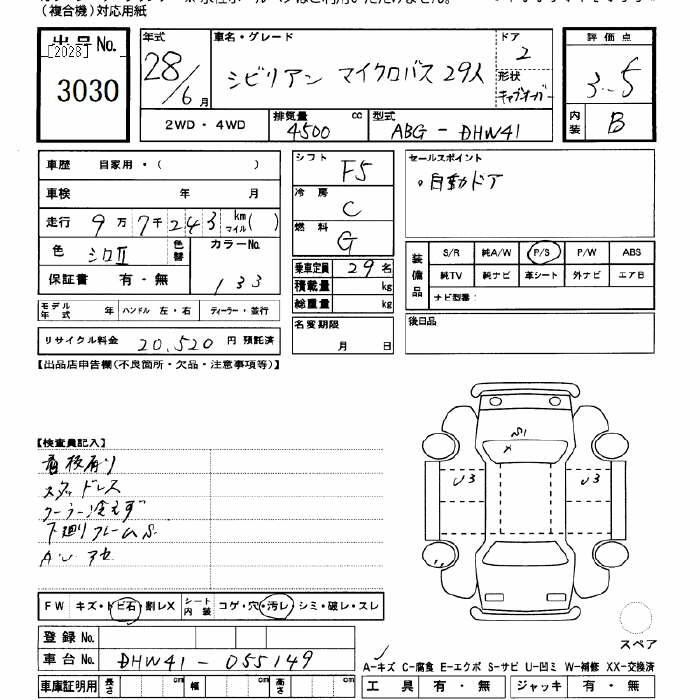 (複合機)対応用紙
出品No.
[2023]
3030
年式
28/6月
車名・グレード
シビリアン マイクロバス 29人
ドア
2
形状
キャブオーバー
評価点
3.5
内装
B
2WD・4WD
排気量
4500 cc
型式
ABG-DHW41
車歴 自家用・( )
車検 年 月
走行 9万7千243 km マイル( )
色 シロII 色替 カラーNo. 133
保証書 有・無
モデル年式 年 ハンドル 左・右 ディーラー・並行
リサイクル料金 20,520 円 預託済
シフト F5
冷房 C
燃料 G
乗車定員 29名
積載量 kg
総重量 kg
名変期限
月 日
セールスポイント
。自動ドア
装備品
S/R 純A/W P/S P/W ABS
純TV 純ナビ 革シート 外ナビ エアB
ナビ型番:
後日品
【出品店申告欄(不良箇所・欠品・注意事項等)】
【検査員記入】
看板有り
スタッドレス
クーラー冷えず
下廻りフレームS
AU アセ
S1
X
U3
U3
FW キズ・トビ石・割レX シート内装 コゲ・穴・汚レ・シミ・破レ・スレ
登録No.
車台No. DHW41-055149
車庫証明用 長さ cm 幅 cm 高さ cm
スペア
A-キズ C-腐食 E-エクボ S-サビ U-凹ミ W-補修 XX-交換済
工具 有・無 ジャッキ 有・無